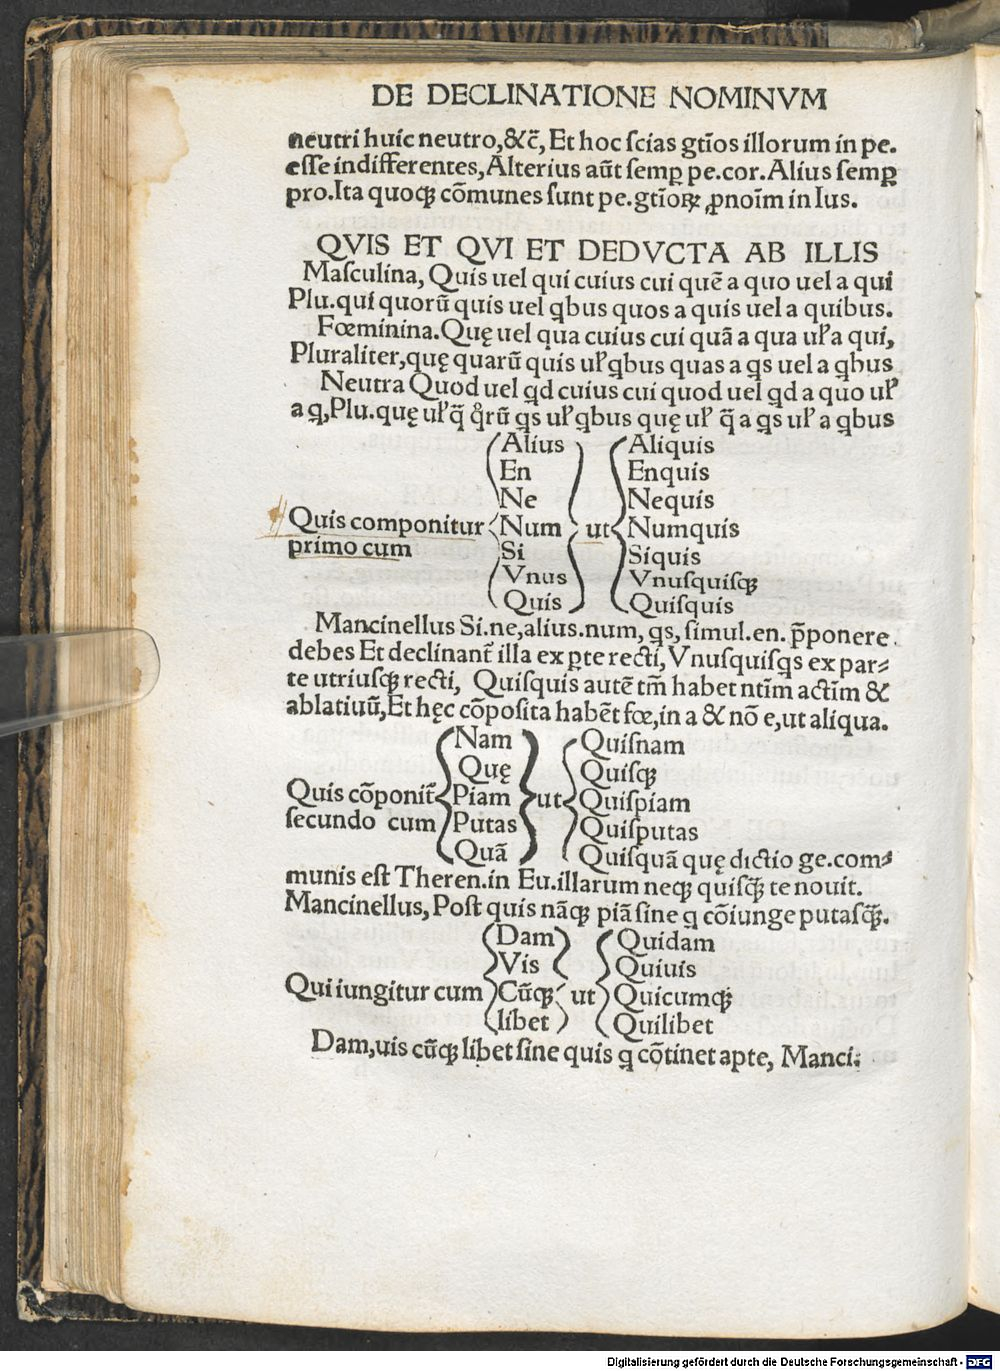 DE DECLINATIONE NOMINVM
neutri huic neutro, &c̄, Et hoc ſcias gtīos illorum in pe.
eſſe indifferentes, Alterius aūt ſemꝑ pe.cor. Alius ſemꝑ
pro. Ita quoqꝫ cōmunes ſunt pe.gtīoꝝ ꝓnoīm in Ius.
QVIS ET QVI ET DEDVCTA AB ILLIS
Maſculina, Quis uel qui cuius cui quē a quo uel a qui
Plu.qui quorū quis uel ꝗbus quos a quis uel a quibus.
Fœminina. Quę uel qua cuius cui quā a qua uł a qui,
Pluraliter, quę quarū quis uł ꝗbus quas a ꝗs uel a ꝗbus
Neutra Quod uel ꝗd cuius cui quod uel ꝗd a quo uł
a ꝗ, Plu. quę uł q̄ qͣrū ꝗs uł ꝗbus quę uł q̄ a ꝗs uł a ꝗbus
Alius Aliquis
En Enquis
Ne Nequis
Quis componitur Num ut Numquis
primo cum Si Siquis
Vnus Vnuſquiſqꝫ
Quis Quiſquis
Mancinellus Si.ne,alius.num, ꝗs, ſimul.en. p̄ponere
debes Et declinant̄ illa ex ꝑte recti, Vnuſquiſꝗs ex par⸗
te utriuſqꝫ recti, Quiſquis autē tm̄ habet ntīm actīm &
ablatiuū, Et hęc cōpoſita habēt fœ, in a & nō e, ut aliqua.
Nam Quiſnam
Quę Quiſqꝫ
Quis cōponit̄ Piam ut Quiſpiam
ſecundo cum Putas Quiſputas
Quā Quiſquā quę dictio ge.com⸗
munis eſt Theren.in Eu.illarum neqꝫ quiſq̄ꝫ te nouit.
Mancinellus, Poſt quis nāqꝫ piā ſine ꝗ cōiunge putaſq̄ꝫ.
Dam Quidam
Vis Quiuis
Qui iungitur cum Cūqꝫ ut Quicumqꝫ
libet Quilibet
Dam, uis cūqꝫ libet ſine quis ꝗ cōtinet apte, Manci.
Digitalisierung gefördert durch die Deutsche Forschungsgemeinschaft - DFG